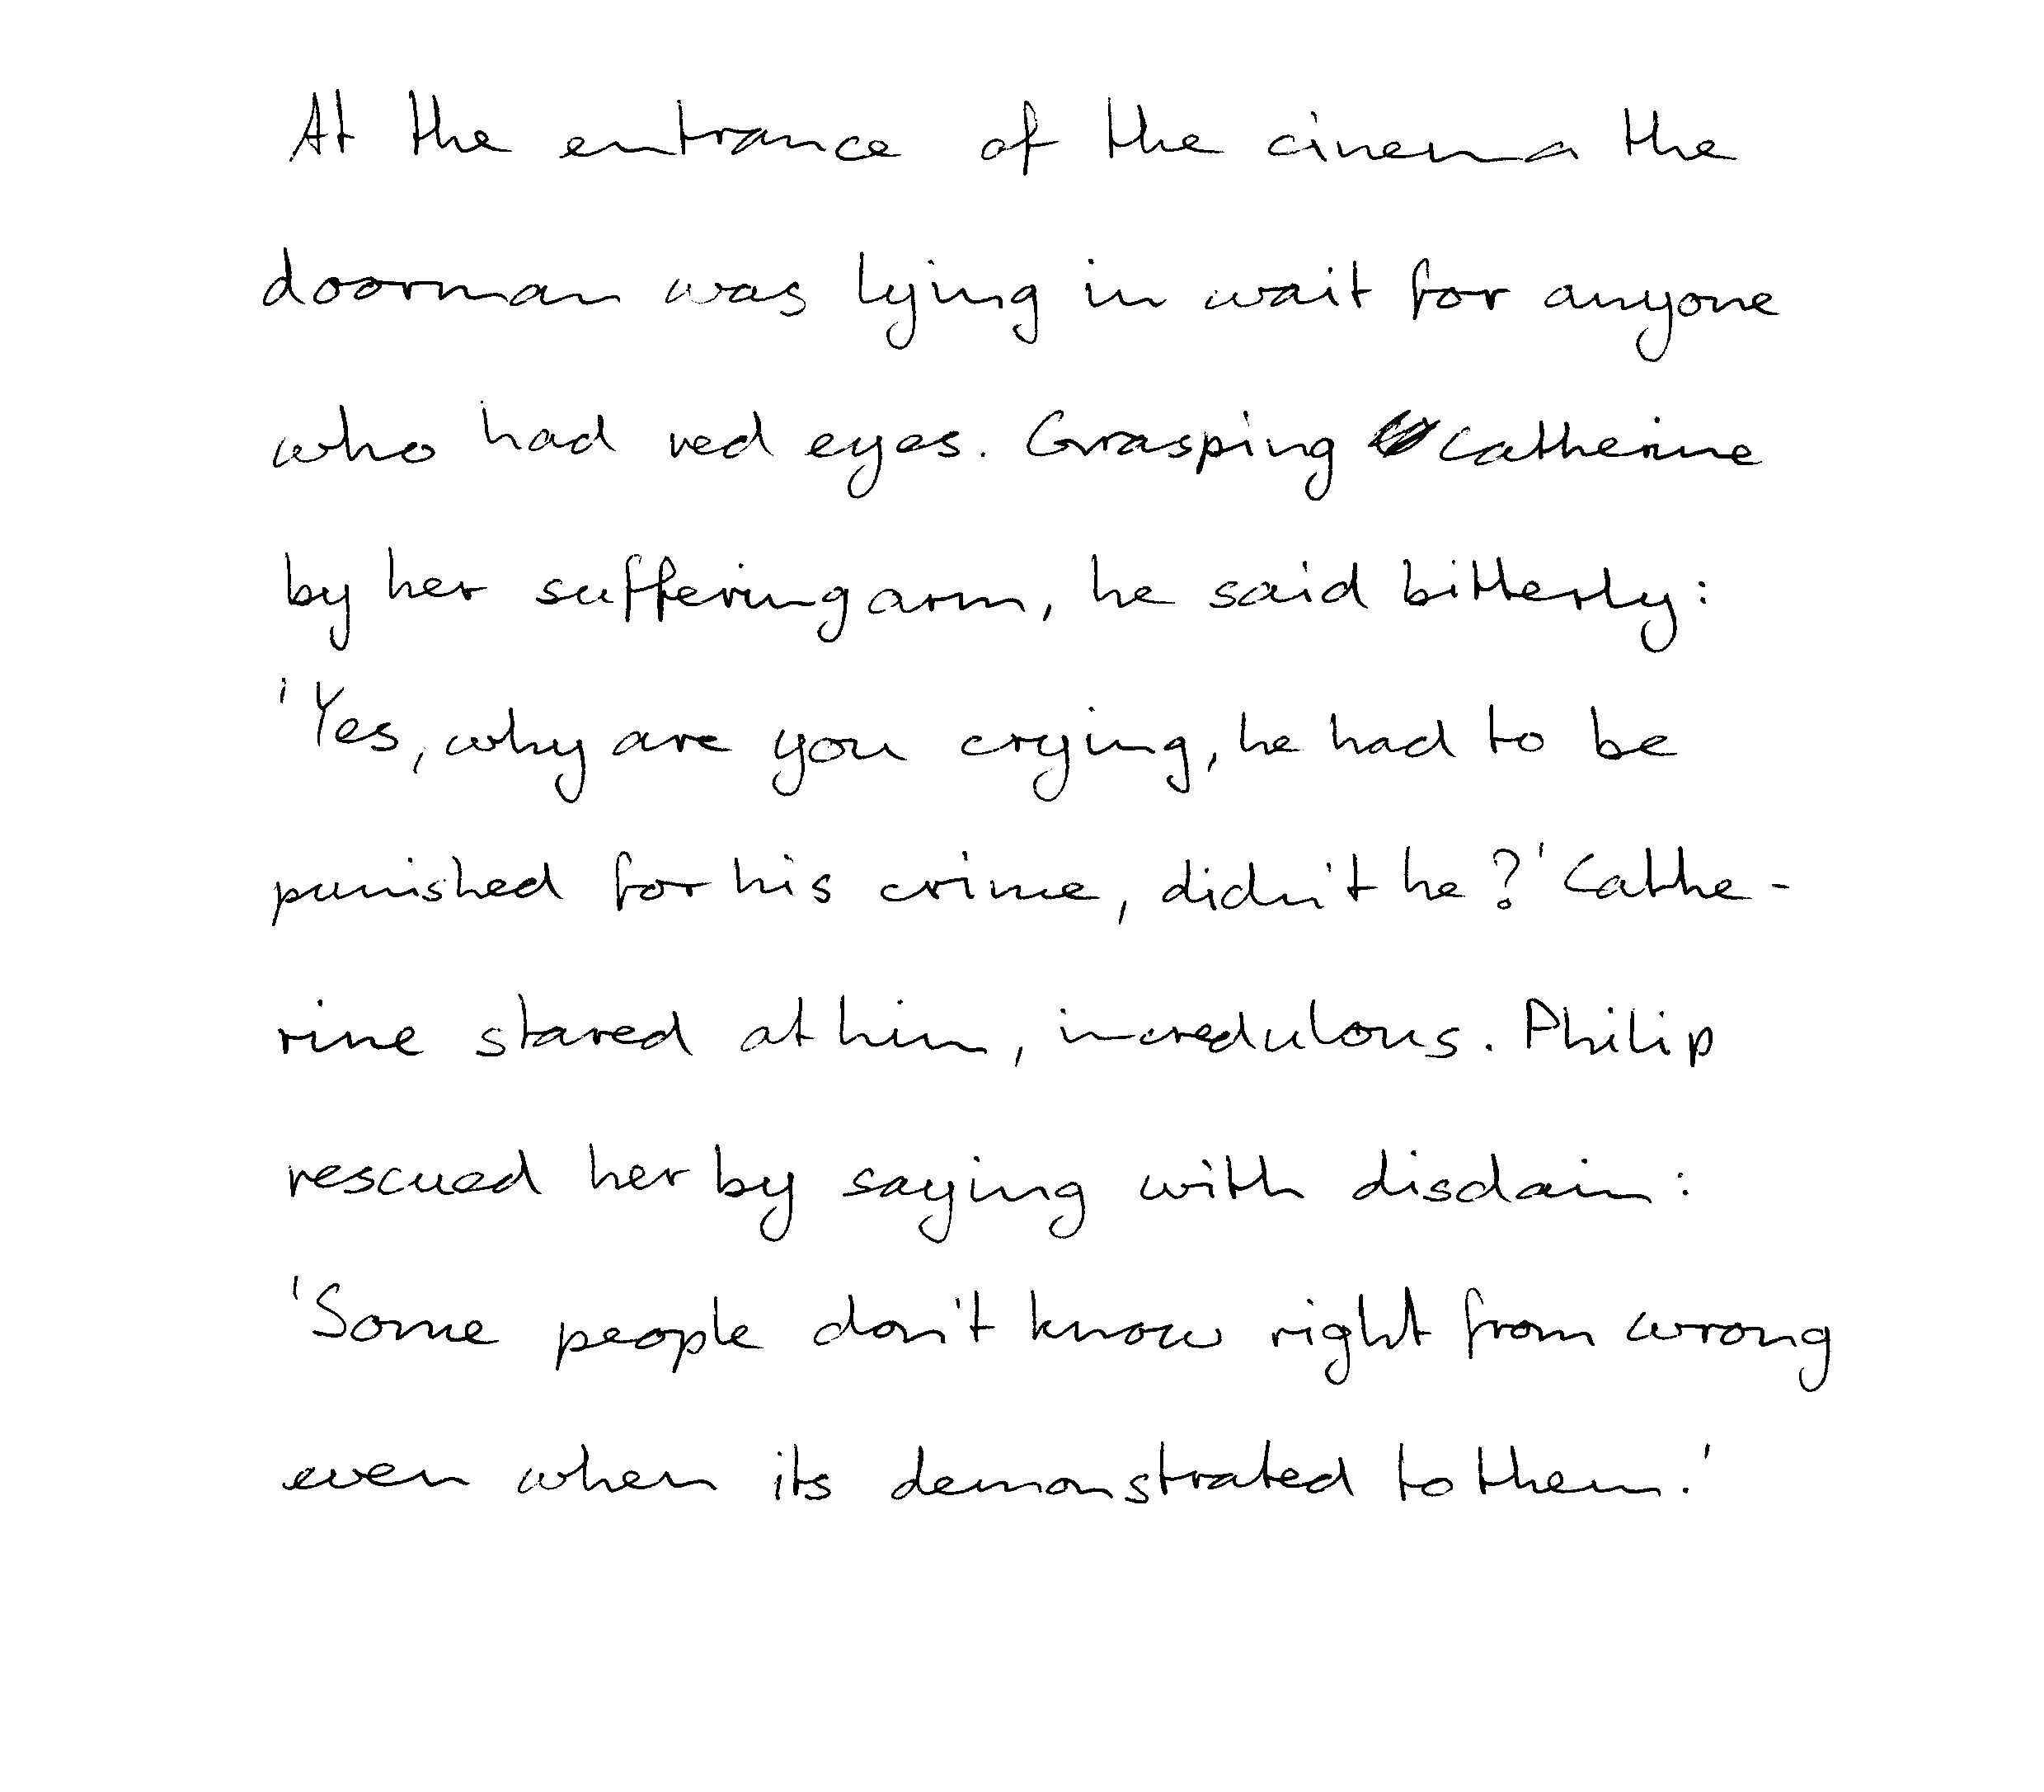 At the entrance of the cinema the
doorman was lying in wait for anyone
who had red eyes. Grasping Catherine
by her suffering arm, he said bitterly:
'Yes, why are you crying, he had to be
punished for his crime, didn't he?' Cathe-
rine stared at him, incredulous. Philip
rescued her by saying with disdain:
'Some people don't know right from wrong
even when its demonstrated to them.'